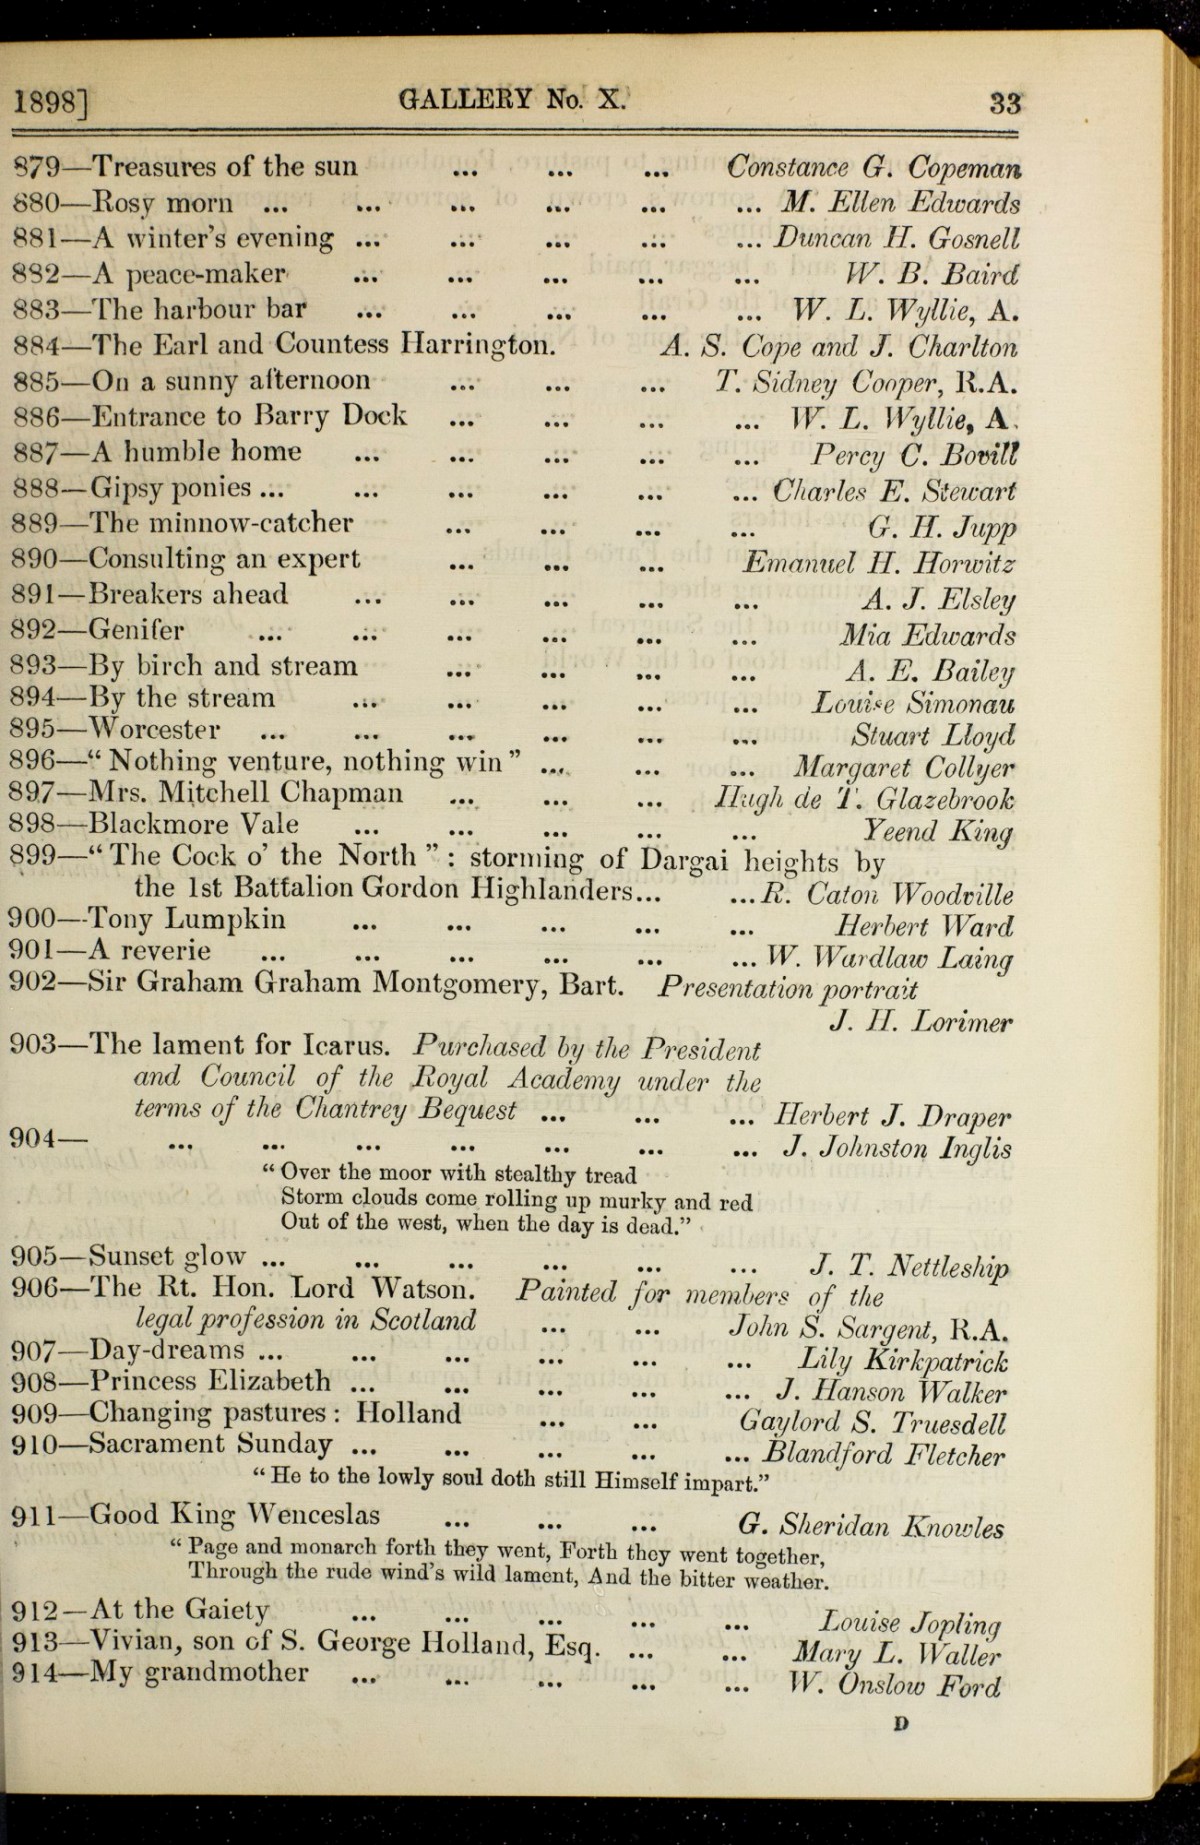 1898] GALLERY No. X. 33
879—Treasures of the sun ... ... ... Constance G. Copeman
880—Rosy morn ... ... ... ... ... ... M. Ellen Edwards
881—A winter's evening ... ... ... ... ... Duncan H. Gosnell
882—A peace-maker ... ... ... ... ... W. B. Baird
883—The harbour bar ... ... ... ... ... W. L. Wyllie, A.
884—The Earl and Countess Harrington. A. S. Cope and J. Charlton
885—On a sunny afternoon ... ... ... T. Sidney Cooper, R.A.
886—Entrance to Barry Dock ... ... ... ... W. L. Wyllie, A.
887—A humble home ... ... ... ... ... Percy C. Bovill
888—Gipsy ponies ... ... ... ... ... ... Charles E. Stewart
889—The minnow-catcher ... ... ... ... G. H. Jupp
890—Consulting an expert ... ... ... Emanuel H. Horwitz
891—Breakers ahead ... ... ... ... ... A. J. Elsley
892—Genifer ... ... ... ... ... ... Mia Edwards
893—By birch and stream ... ... ... ... A. E. Bailey
894—By the stream ... ... ... ... ... Louise Simonau
895—Worcester ... ... ... ... ... ... Stuart Lloyd
896—“Nothing venture, nothing win” ... ... ... Margaret Collyer
897—Mrs. Mitchell Chapman ... ... ... Hugh de T. Glazebrook
898—Blackmore Vale ... ... ... ... ... Yeend King
899—“The Cock o' the North”: storming of Dargai heights by
the 1st Battalion Gordon Highlanders... ... R. Caton Woodville
900—Tony Lumpkin ... ... ... ... ... Herbert Ward
901—A reverie ... ... ... ... ... ... W. Wardlaw Laing
902—Sir Graham Graham Montgomery, Bart. Presentation portrait
J. H. Lorimer
903—The lament for Icarus. Purchased by the President
and Council of the Royal Academy under the
terms of the Chantrey Bequest ... ... ... Herbert J. Draper
904— ... ... ... ... ... ... ... J. Johnston Inglis
“Over the moor with stealthy tread
Storm clouds come rolling up murky and red
Out of the west, when the day is dead.”
905—Sunset glow ... ... ... ... ... ... J. T. Nettleship
906—The Rt. Hon. Lord Watson. Painted for members of the
legal profession in Scotland ... ... John S. Sargent, R.A.
907—Day-dreams ... ... ... ... ... ... Lily Kirkpatrick
908—Princess Elizabeth ... ... ... ... ... J. Hanson Walker
909—Changing pastures: Holland ... ... Gaylord S. Truesdell
910—Sacrament Sunday ... ... ... ... ... Blandford Fletcher
“He to the lowly soul doth still Himself impart.”
911—Good King Wenceslas ... ... ... G. Sheridan Knowles
“Page and monarch forth they went, Forth they went together,
Through the rude wind's wild lament, And the bitter weather.
912—At the Gaiety ... ... ... ... ... Louise Jopling
913—Vivian, son of S. George Holland, Esq. ... ... Mary L. Waller
914—My grandmother ... ... ... ... ... W. Onslow Ford
D